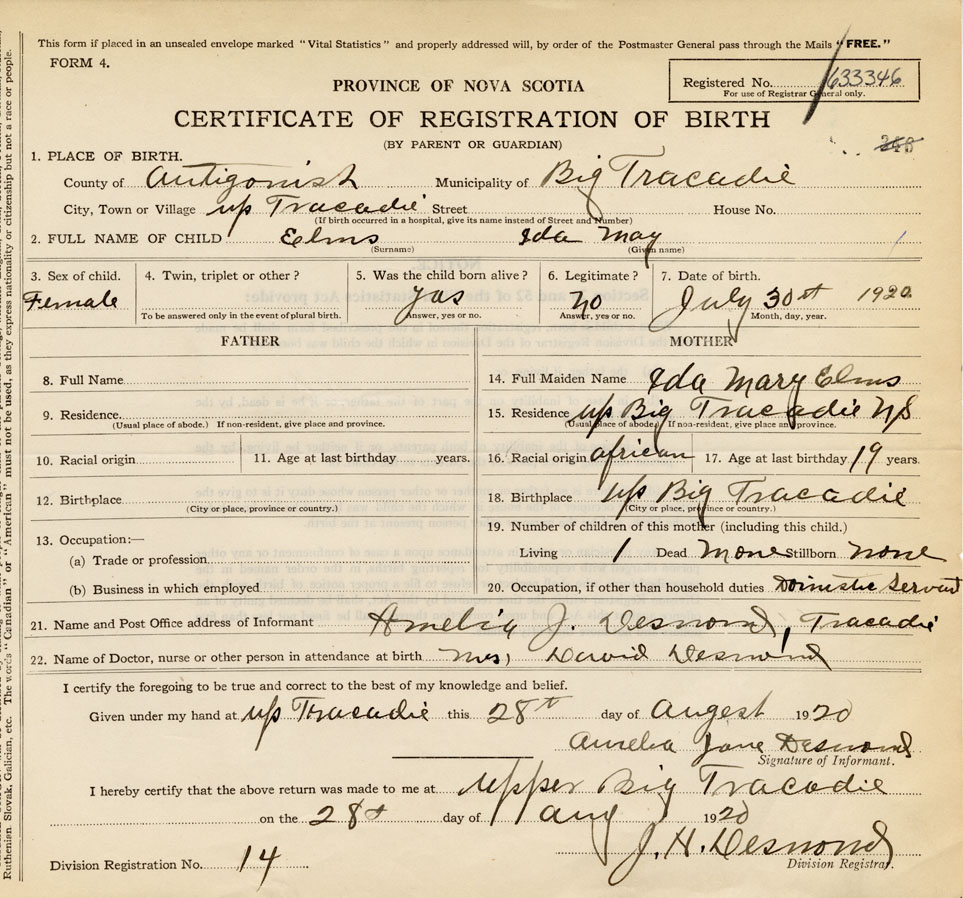 This form if placed in an unsealed envelope marked "Vital Statistics" and properly addressed will, by order of the Postmaster General pass through the Mails "FREE."
FORM 4.
Registered No. 633346
For use of Registrar General only.
PROVINCE OF NOVA SCOTIA
CERTIFICATE OF REGISTRATION OF BIRTH
(BY PARENT OR GUARDIAN)
1. PLACE OF BIRTH.
County of Antigonish Municipality of Big Tracadie
City, Town or Village up Tracadie Street House No.
(If birth occurred in a hospital, give its name instead of Street and Number)
2. FULL NAME OF CHILD Eelms Ida May
(Surname) (Given name)
3. Sex of child. 4. Twin, triplet or other? 5. Was the child born alive? 6. Legitimate? 7. Date of birth.
Female yas no July 30st 1920
To be answered only in the event of plural birth. Answer, yes or no. Answer, yes or no. Month, day, year.
FATHER MOTHER
8. Full Name
14. Full Maiden Name Ida Mary Elms
9. Residence.
(Usual place of abode.) If non-resident, give place and province.
15. Residence up Big Tracadie NS
(Usual place of abode.) If non-resident, give place and province.
10. Racial origin 11. Age at last birthday years.
16. Racial origin african 17. Age at last birthday 19 years.
12. Birthplace
(City or place, province or country.)
18. Birthplace up Big Tracadie
(City or place, province or country.)
13. Occupation:—
(a) Trade or profession
(b) Business in which employed
19. Number of children of this mother (including this child.)
Living 1 Dead none Stillborn none
20. Occupation, if other than household duties Domistic Servant
21. Name and Post Office address of Informant Amelia J. Desmond, Tracadie
22. Name of Doctor, nurse or other person in attendance at birth Mrs, David Desmond
I certify the foregoing to be true and correct to the best of my knowledge and belief.
Given under my hand at up Tracadie this 28th day of Augest 1920
Amelia Jane Desmond
Signature of Informant.
I hereby certify that the above return was made to me at Upper Big Tracadie
on the 28th day of Aug 1920
J. H. Desmond
Division Registrar.
Division Registration No. 14
Ruthenian, Slovak, Galician, etc. The words "Canadian" or "American" must not be used, as they express nationality or citizenship but not a race or people.